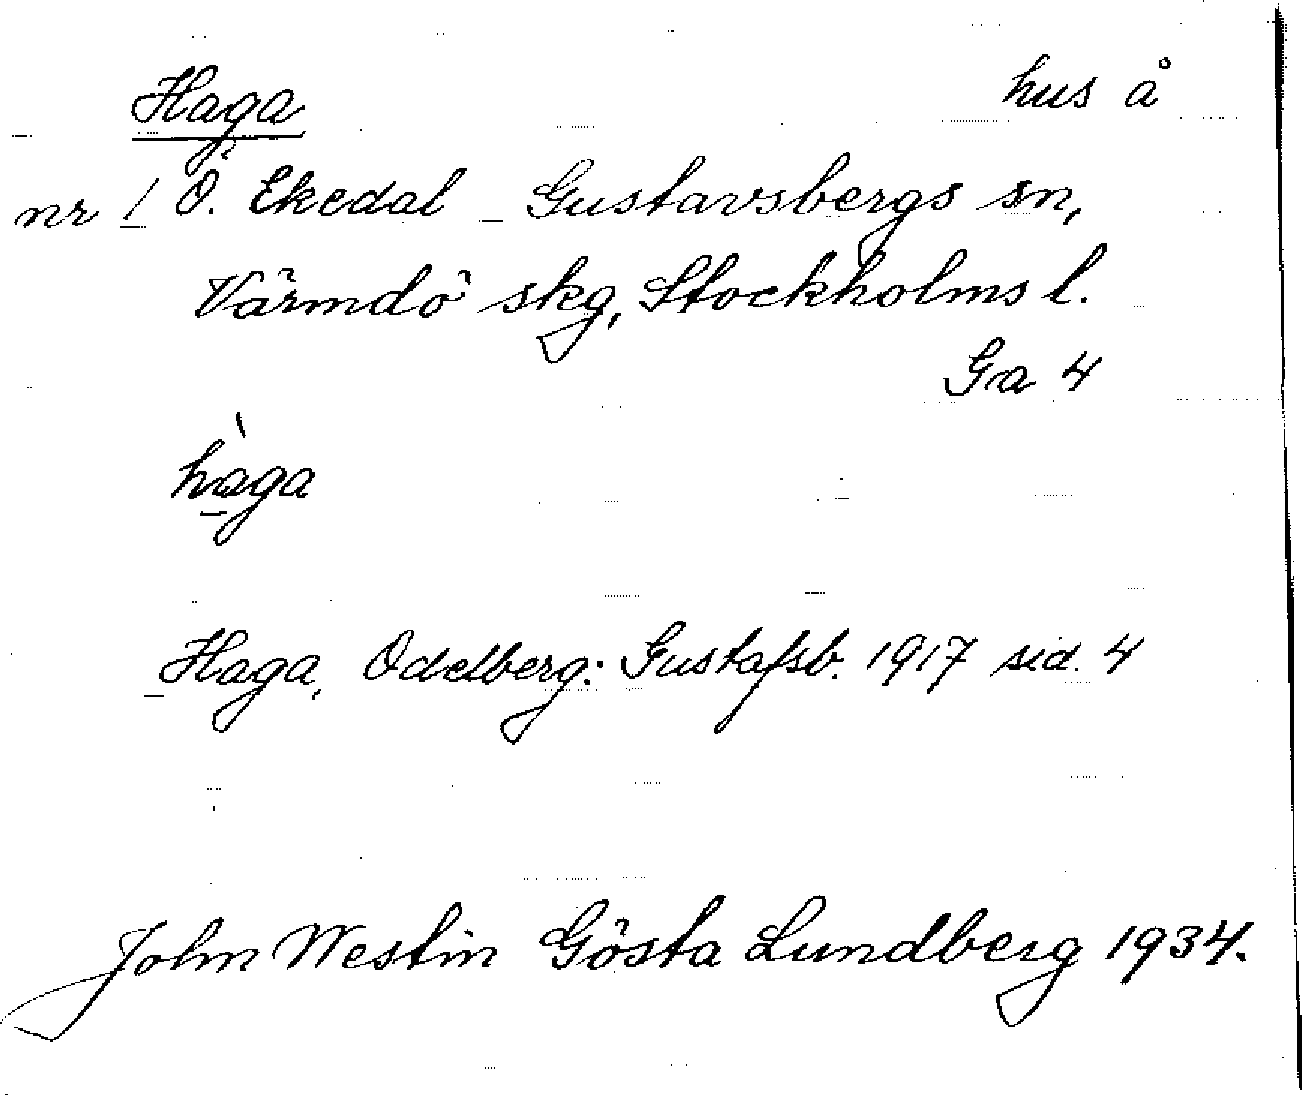 Haga hus å
nr 1 Ö. Ekedal Gustavsbergs sn,
Värmdö skg, Stockholms l.
Ga 4
hàga
Haga, Odelberg: Gustafsb. 1917 sid. 4
John Westin Gösta Lundberg 1934.